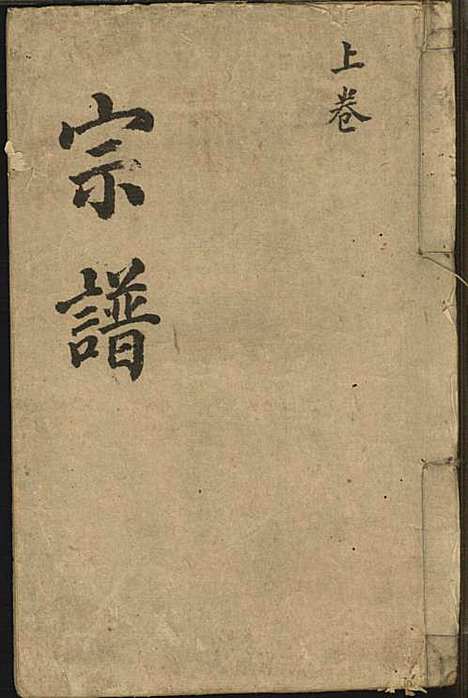 上卷
宗譜